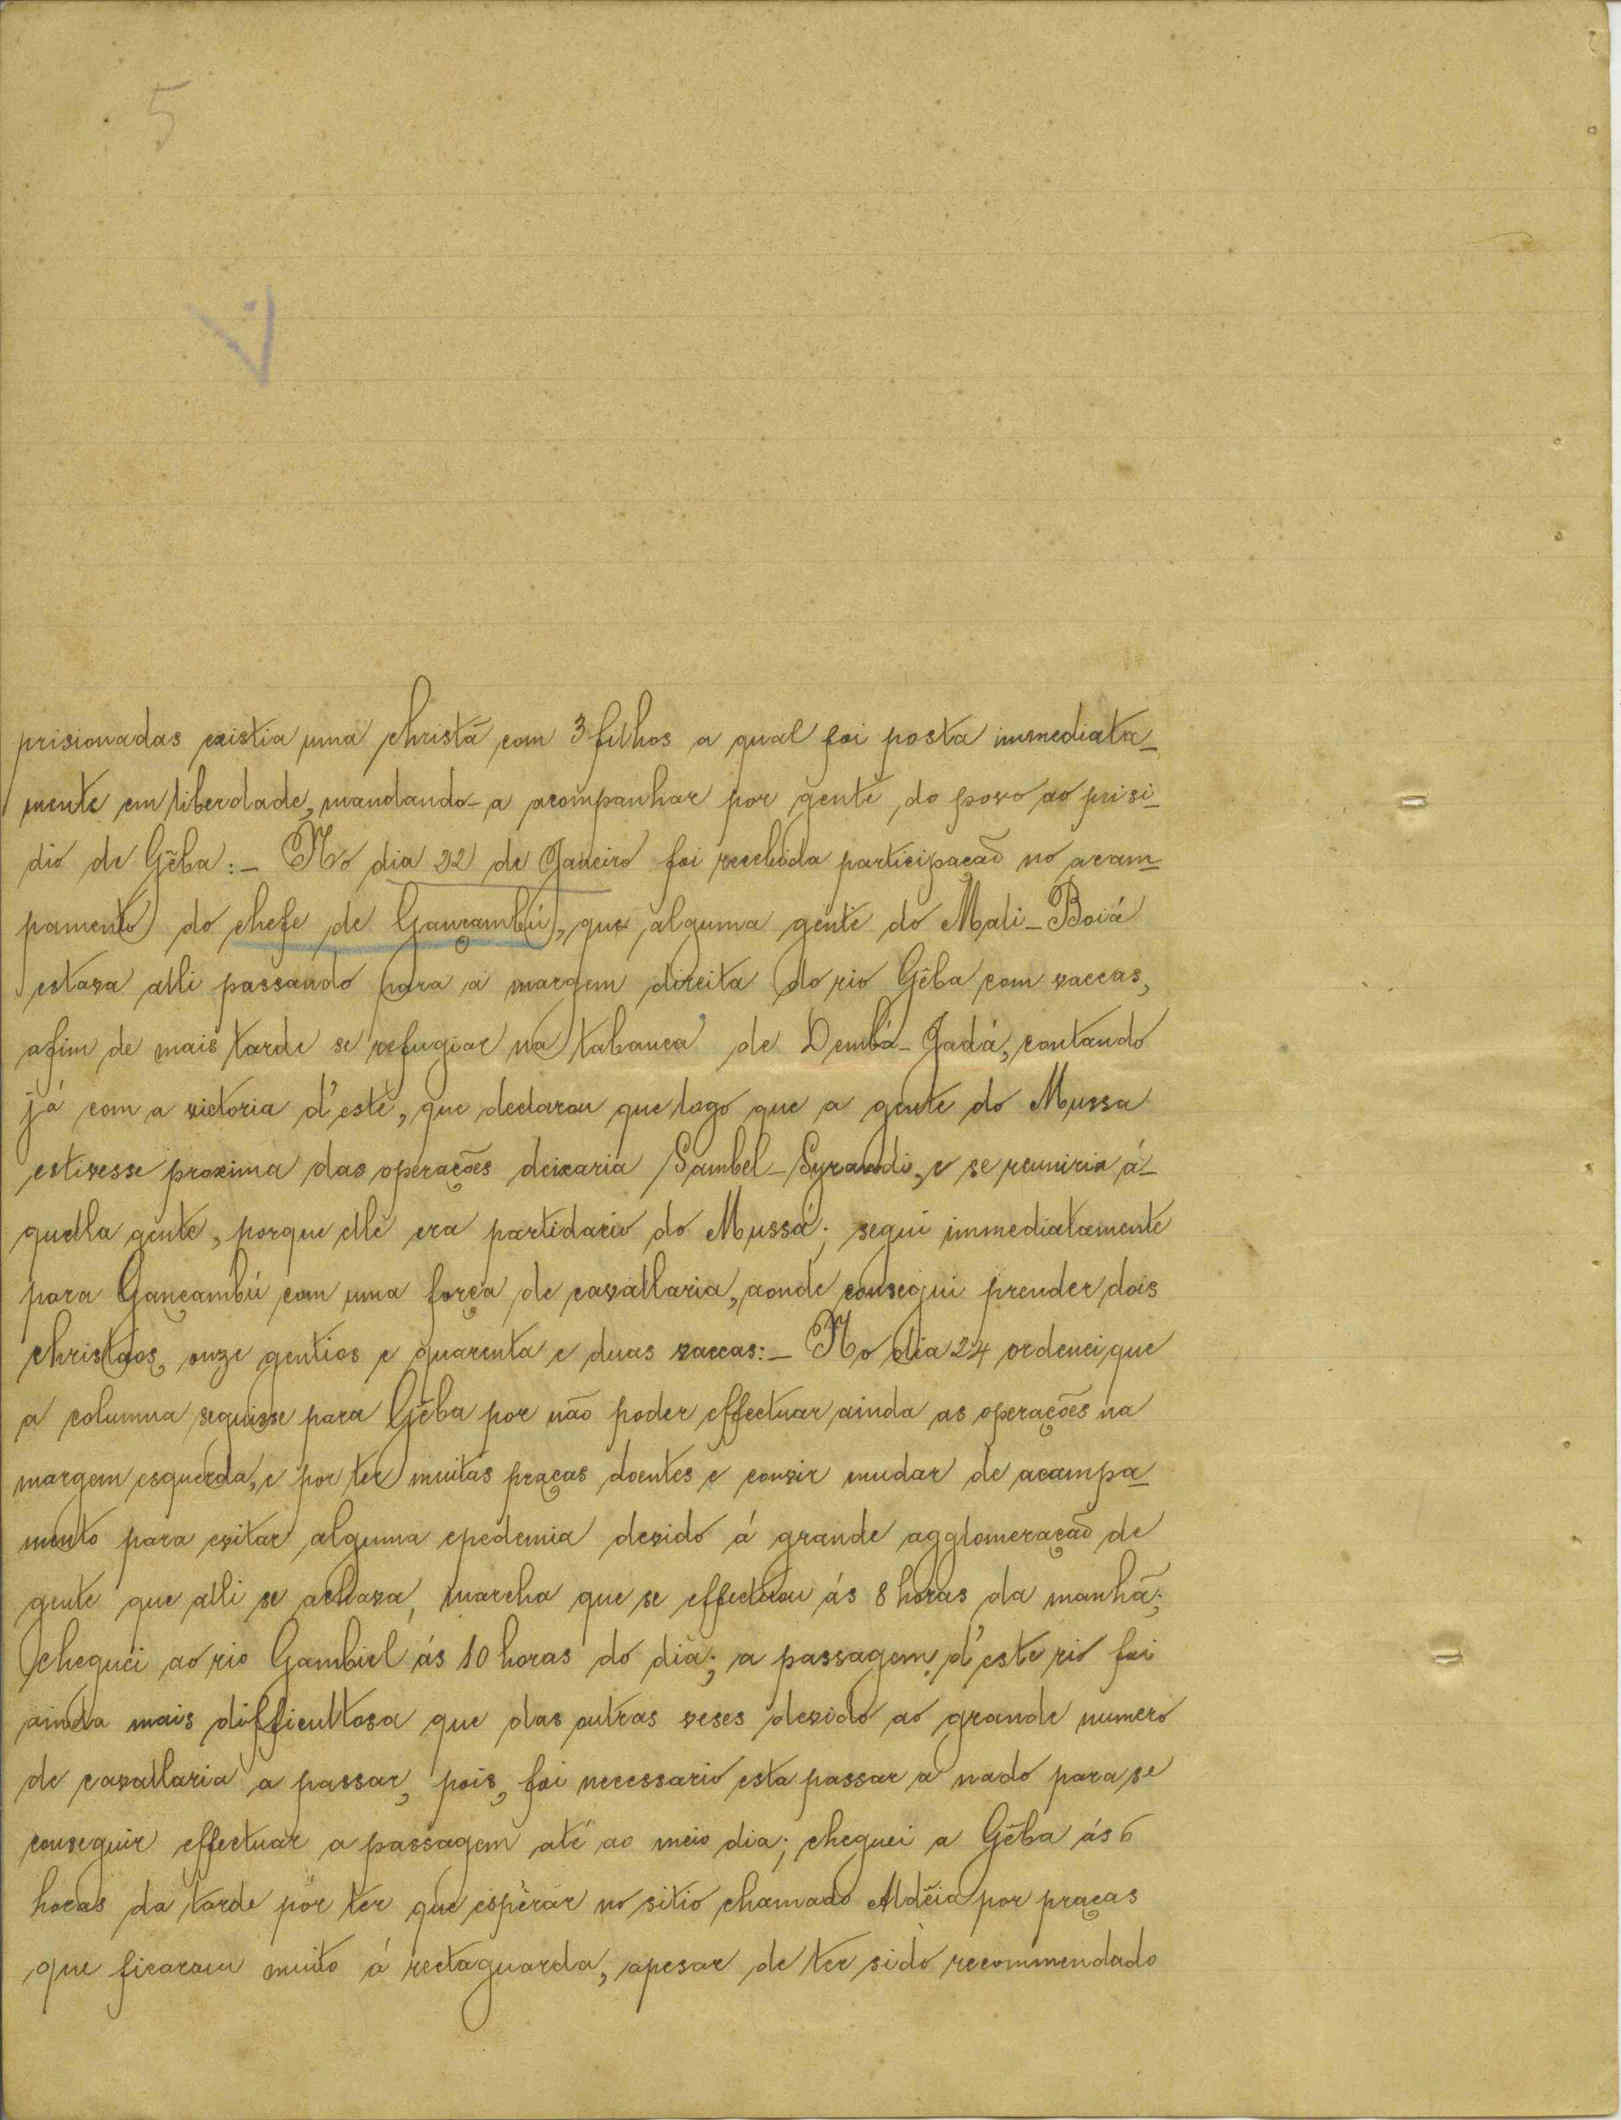 5
prisionadas existia uma christã com 3 filhos a qual foi posta immediata-
mente em liberdade, mandando-a acompanhar por gente do povo ao prisi-
dio de Gêba:- No dia 22 de Janeiro foi recebida participação no acam-
pamento do chefe de Gançambú, que alguma gente do Mali-Boiá
estava alli passando para a margem direita do rio Gêba com vaccas,
afim de mais tarde se refugiar na tabanca de Dembá-Jadá, contando
já com a victoria d'este, que declarou que logo que a gente do Mussa
estivesse proxima das operações deixaria Sambel-Syrandi, e se reuniria á-
quella gente, porque elle era partidario do Mussá; segui immediatamente
para Gançambú com uma força de cavallaria, aonde consegui prender dois
christãos, onze gentios e quarenta e duas vaccas:- No dia 24 ordenei que
a columna seguisse para Gêba por não poder effectuar ainda as operações na
margem esquerda, e por ter muitas praças doentes e convir mudar de acampa-
mento para evitar alguma epedemia devido á grande agglomeração de
gente que alli se achava, marcha que se effectuou ás 8 horas da manhã;
cheguei ao rio Gambiel ás 10 horas do dia; a passagem d'este rio foi
ainda mais difficultosa que das outras veses devido ao grande numero
de cavallaria a passar, pois, foi necessario esta passar a nado para se
conseguir effectuar a passagem até ao meio dia; cheguei a Gêba ás 6
horas da tarde por ter que esperar no sitio chamado Aldêia por praças
que ficaram muito á rectaguarda, apesar de ter sido recommendado